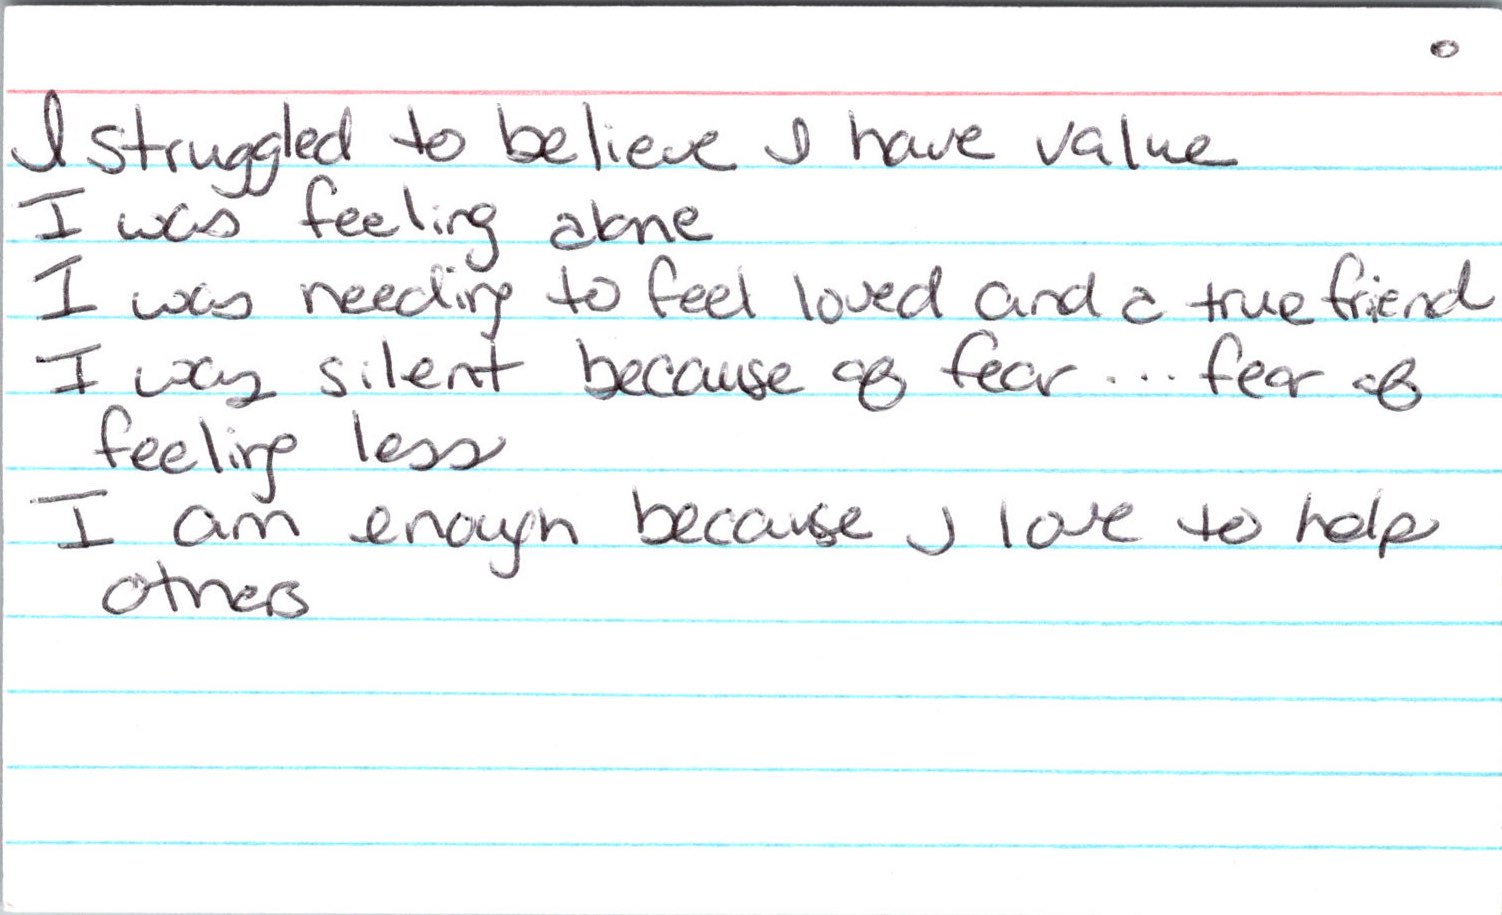 I struggled to believe I have value
I was feeling alone
I was needing to feel loved and a true friend
I was silent because of fear... fear of
feeling less
I am enough because I love to help
others